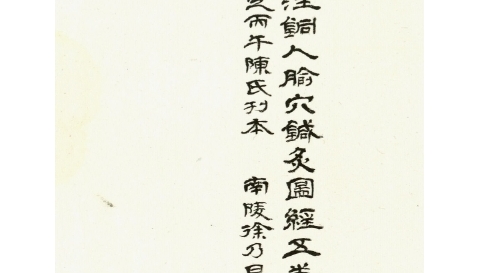 注銅人腧穴鍼灸圖經五卷
丙午陳氏刊本 南陵徐乃昌